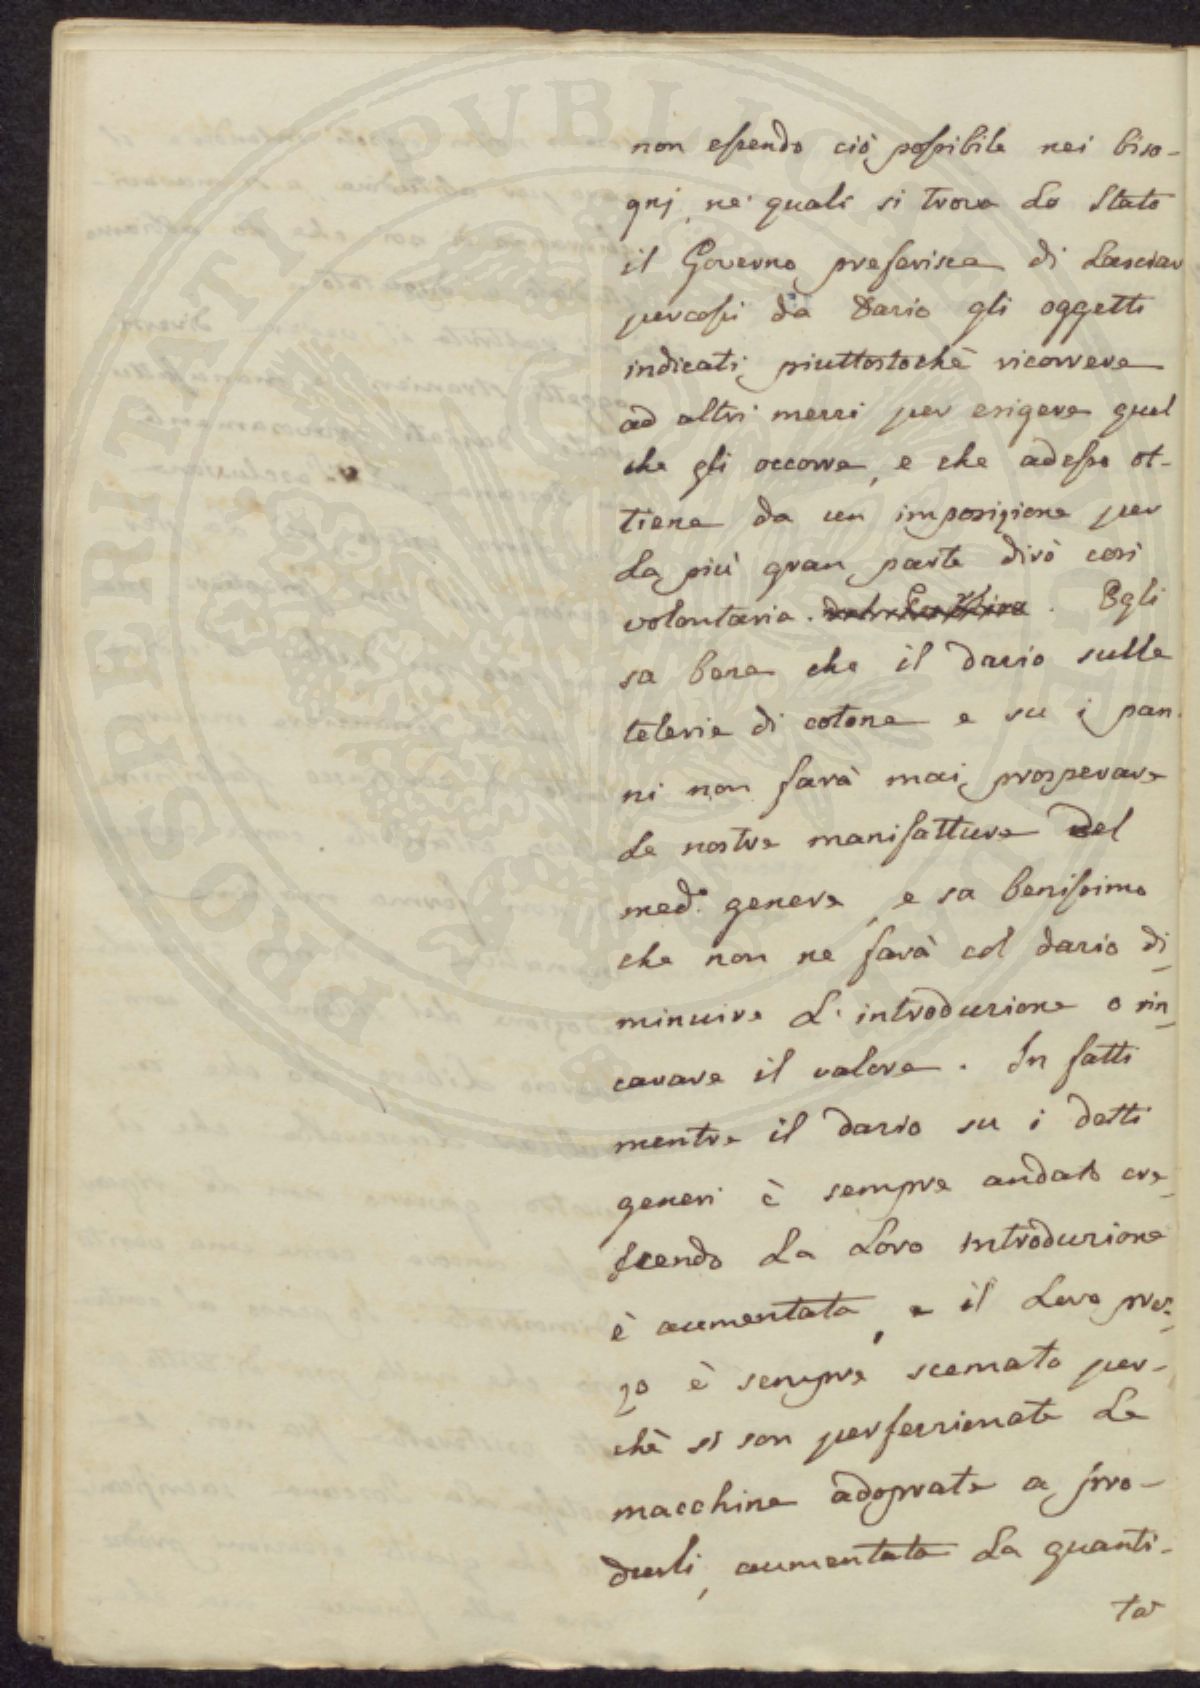 non essendo ciò possibile nei biso-
gnj ne' quali si trova Lo Stato
il Governo preferisca di Lasciar
percossi da Dazio gli oggetti
indicati, piuttostochè ricorrere
ad altri mezzi per esigere quel
che gli occorre, e che adesso ot-
tiene da un imposizione per
La più gran parte dirò così
volontaria. Egli
sa bene che il dazio sulle
telerie di cotone e su i pan-
ni non farà mai prosperare
Le nostre manifatture del
med.° genere, e sa benissimo
che non ne farà col dazio di-
minuire L' introduzione o rin-
carare il valore. In fatti
mentre il dazio su i detti
generi è sempre andato cre-
scendo La Loro introduzione
è aumentata, e il Loro prez-
zo è sempre scemato per-
chè si son perfezionate Le
macchine adoprate a pro-
durli, aumentata La quanti-
tà
PROSPERITATI PVBLICAE